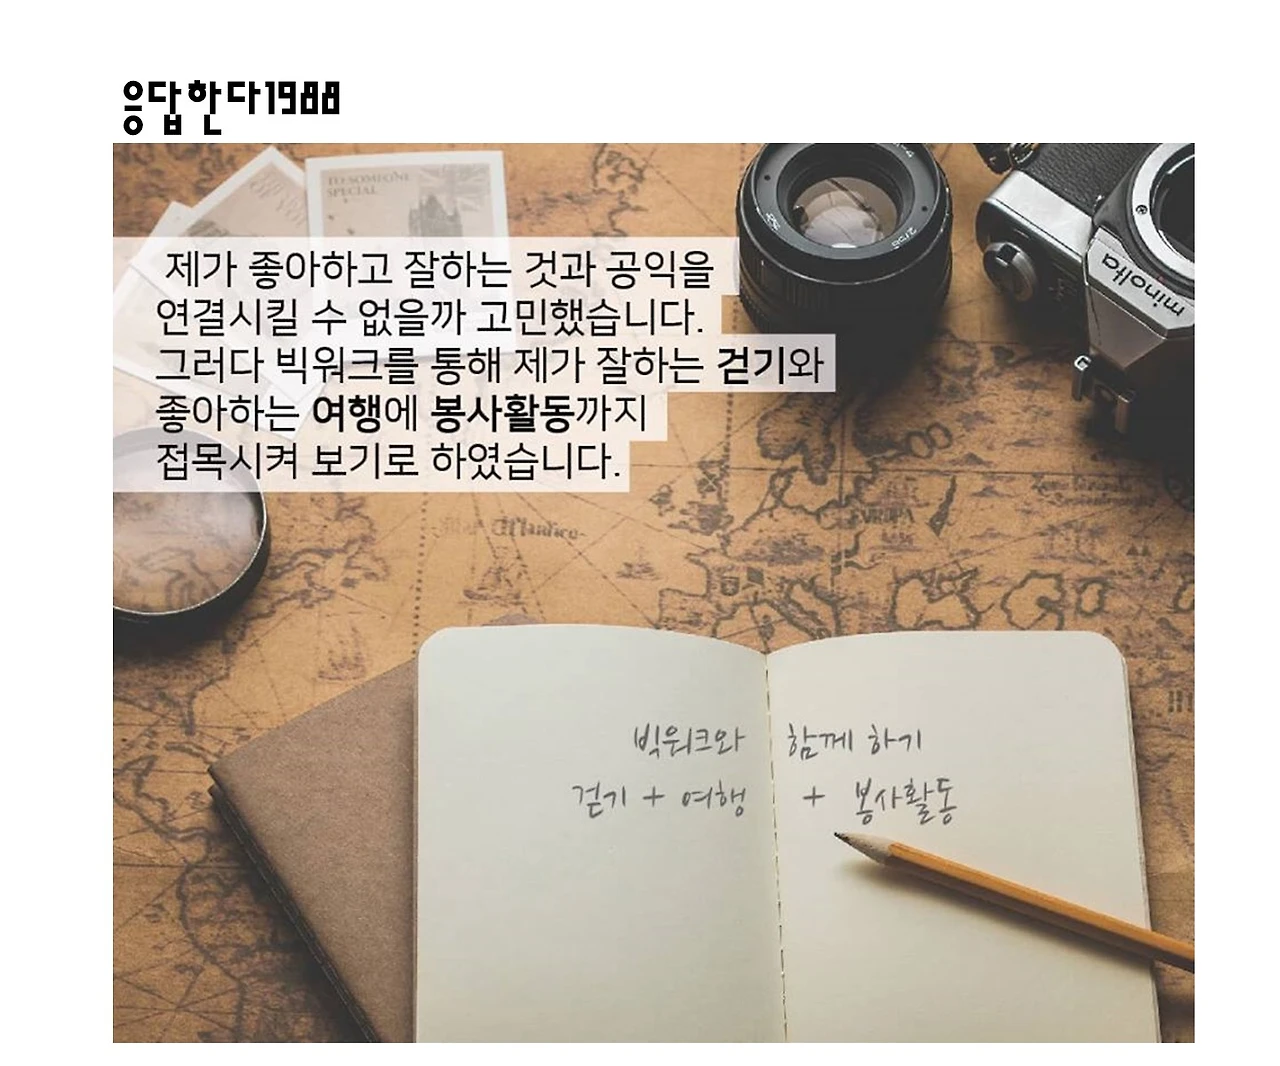 응답한다1988
TO SOMEONE
SPECIAL
제가 좋아하고 잘하는 것과 공익을
연결시킬 수 없을까 고민했습니다.
그러다 빅워크를 통해 제가 잘하는 걷기와
좋아하는 여행에 봉사활동까지
접목시켜 보기로 하였습니다.
minolta
EUROPA
빅워크와 함께 하기
걷기 + 여행 + 봉사활동